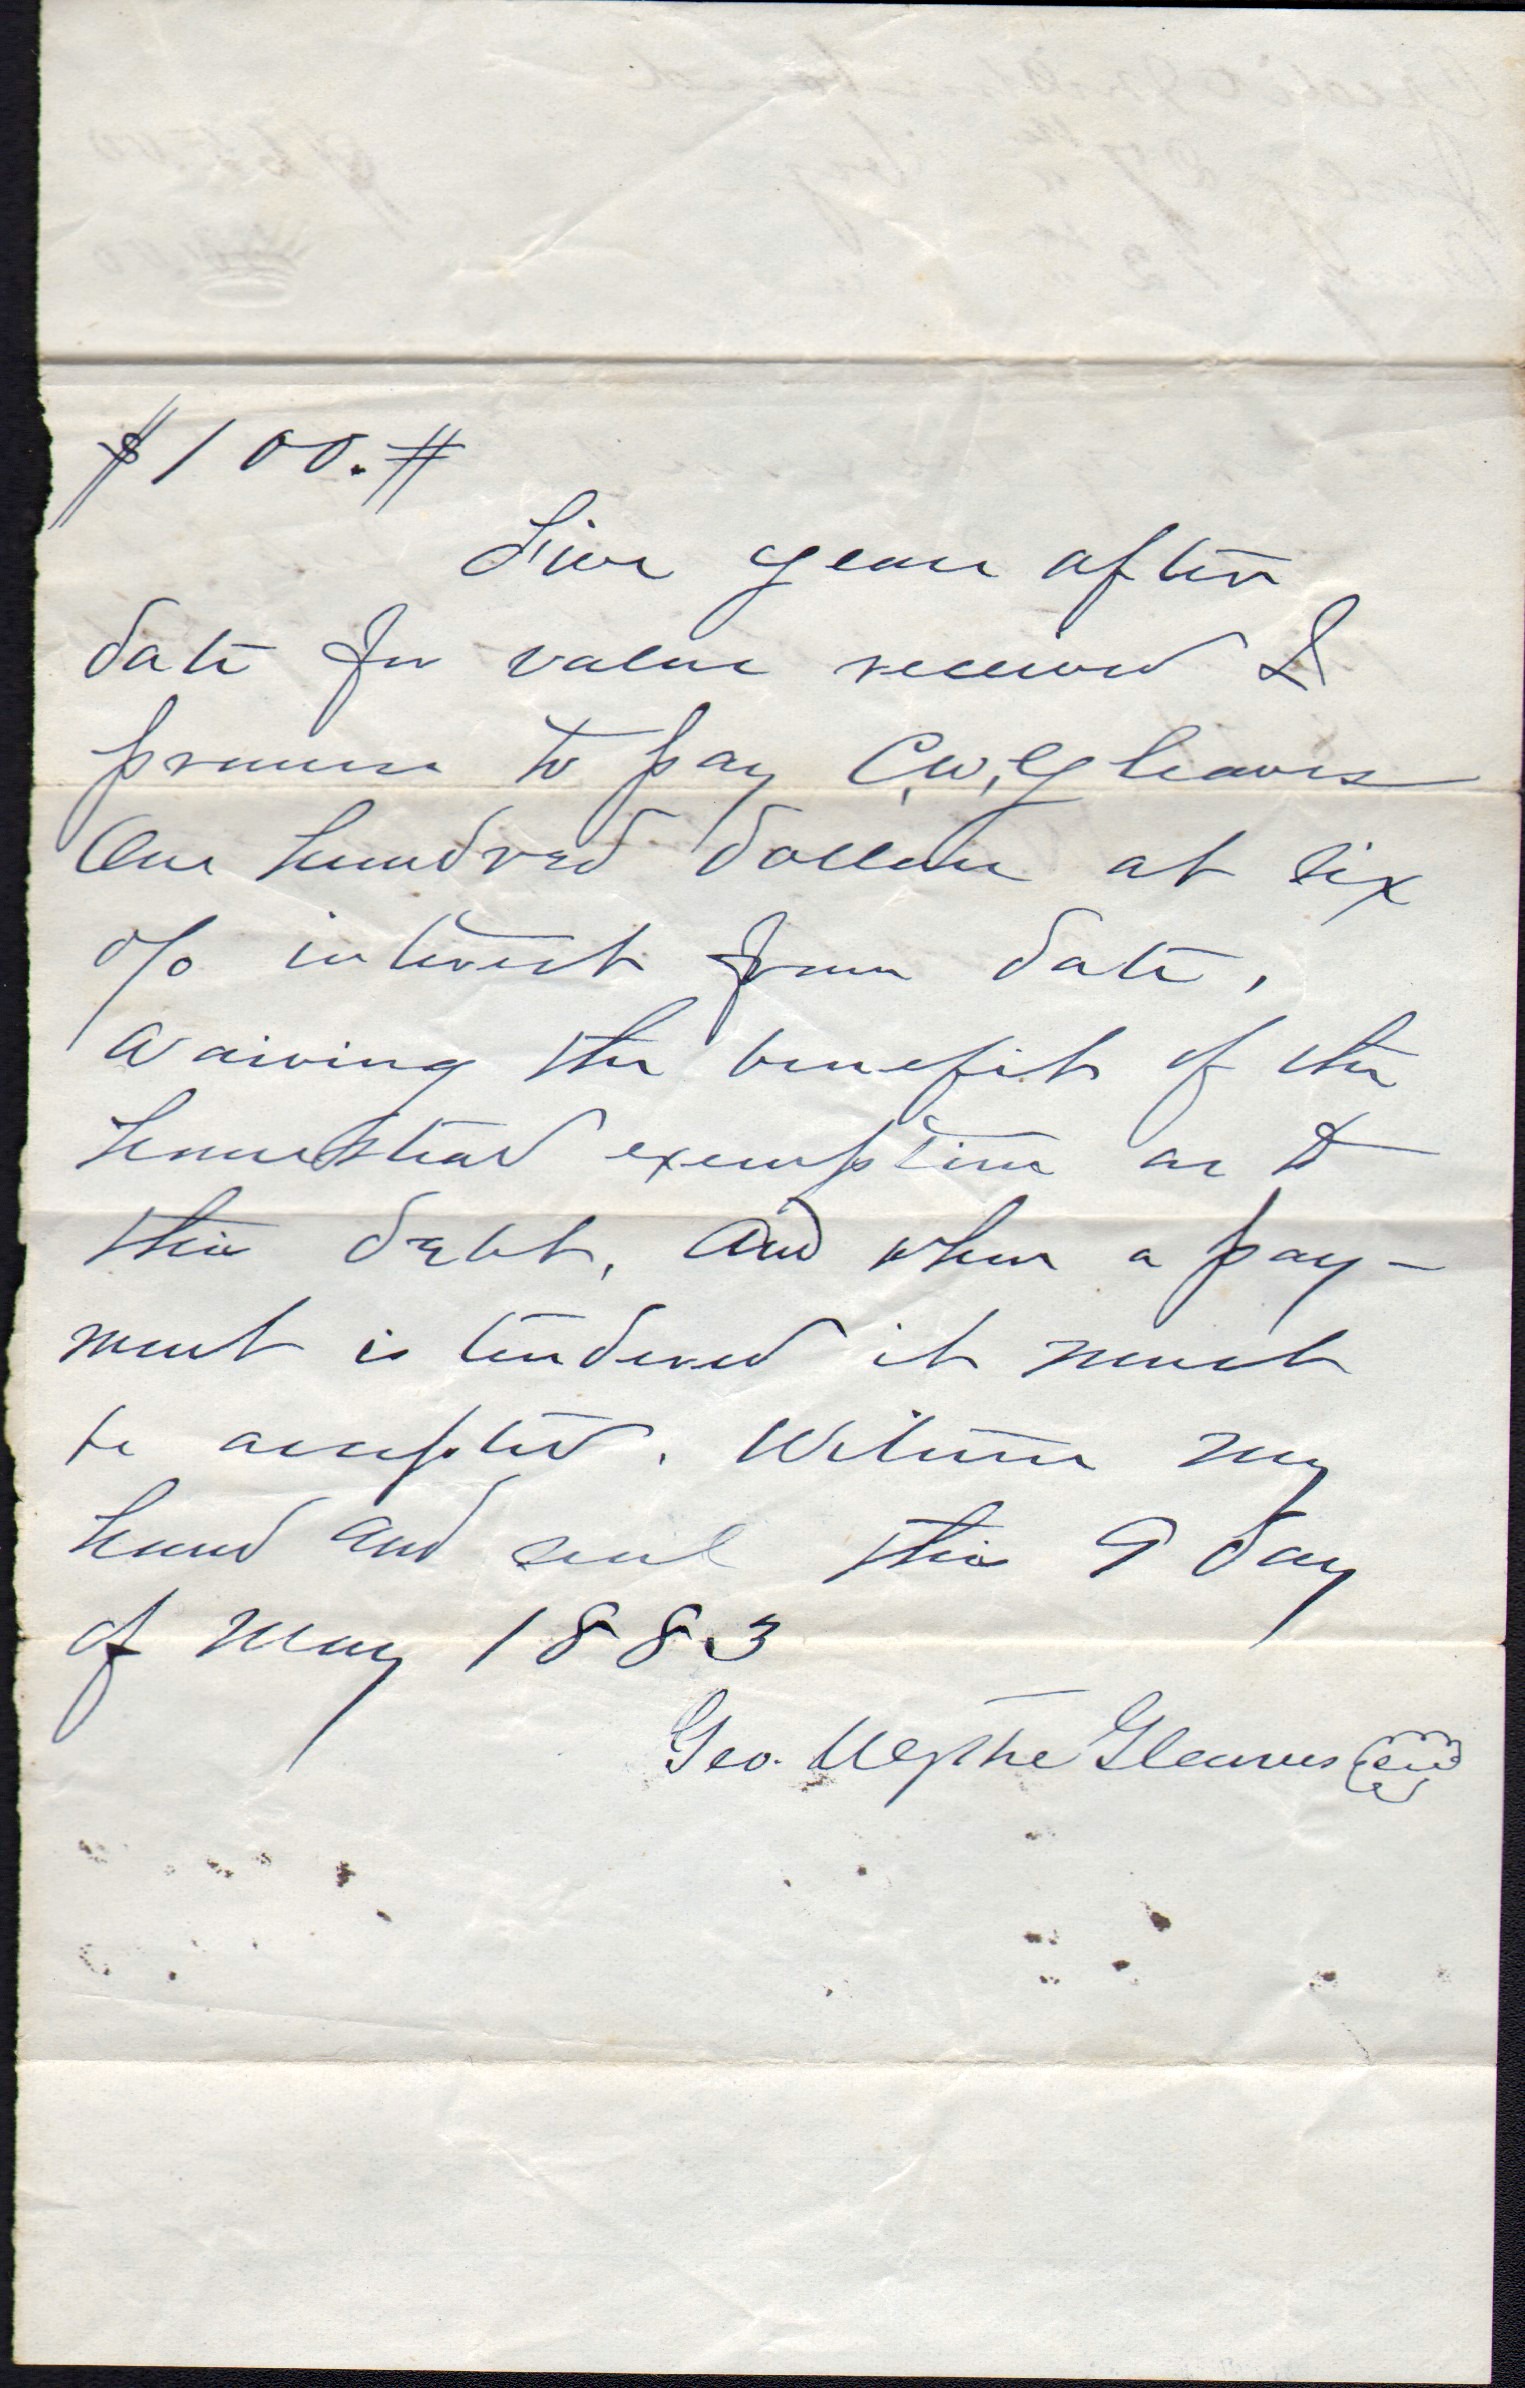 $100.#
Five years after
date for value received I
promise to pay C.W. Gleaves
One hundred dollars at six
o/o interest from date,
Waiving the benefit of the
homestead exemption as to
this debt, and when a pay-
ment is tendered it must
be accepted. Witness my
hand and seal this 9 day
of May 1883
Geo. Wythe Gleaves